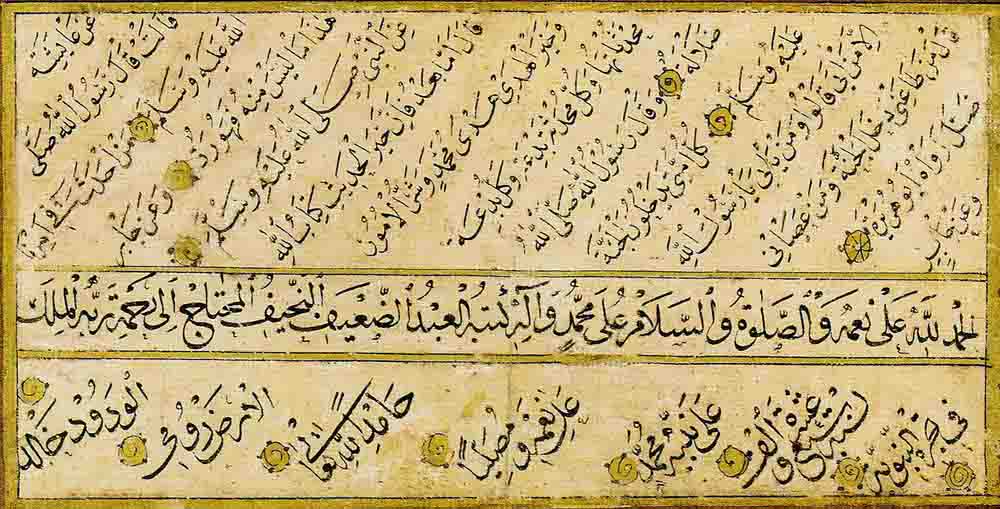 عن عائشة
قالت قال رسول الله صلى
الله عليه وسلم من احدث في امرنا
هذا ما ليس منه فهو رد وعن جابر
عن النبي صلى الله عليه وسلم
قال اما بعد فان خير الحديث كتاب الله
وخير الهدى هدى محمد وشر الامور
محدثاتها وكل محدثة بدعة وكل بدعة
ضلالة وقال رسول الله صلى الله
عليه وسلم كل امتي يدخلون الجنة
الا من ابى قالوا ومن يأبى يا رسول الله
قال من اطاعني دخل الجنة ومن عصاني
رواه ابو هريرة
وعن جابر
الحمد لله على نعمه والصلوة والسلام على محمد وآله كتبه العبد الضعيف النحيف المحتاج الى رحمة ربه الملك
الودود خالد
الارضرومي
حامدا لله تعالى
على نعمه ومصليا
على نبيه محمد
عشرة
في هجرة النبوية